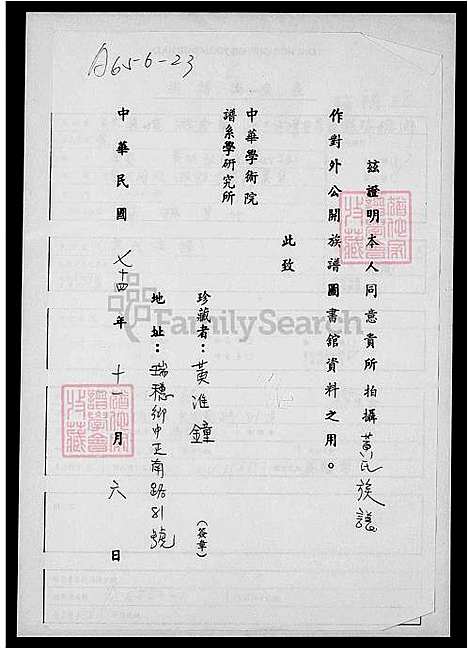 A65-6-23
茲證明本人同意貴所拍攝黃氏族譜
作對外公開族譜圖書館資料之用。
此致
中華學術院
譜系學研究所
珍藏者：黃淮鐘（簽章）
地址：瑞穗鄉中正南路81號
中華民國七十四年十一月六日
FamilySearch